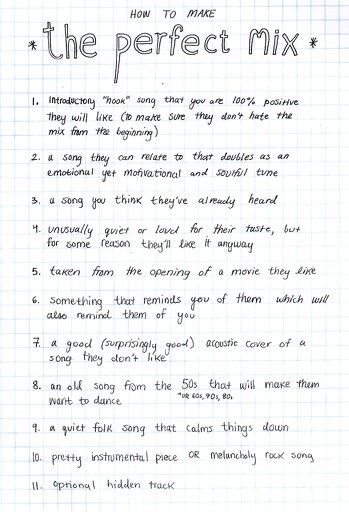 HOW TO MAKE
* the perfect mix *
1. Introductory "hook" song that you are 100% positive
they will like (to make sure they don't hate the
mix from the beginning)
2. a song they can relate to that doubles as an
emotional yet motivational and soulful tune
3. a song you think they've already heard
4. unusually quiet or loud for their taste, but
for some reason they'll like it anyway
5. taken from the opening of a movie they like
6. something that reminds you of them which will
also remind them of you
7. a good (surprisingly good) acoustic cover of a
song they don't like
8. an old song from the 50s that will make them
want to dance *OR 60s, 70s, 80s
9. a quiet folk song that calms things down
10. pretty instrumental piece OR melancholy rock song
11. optional hidden track